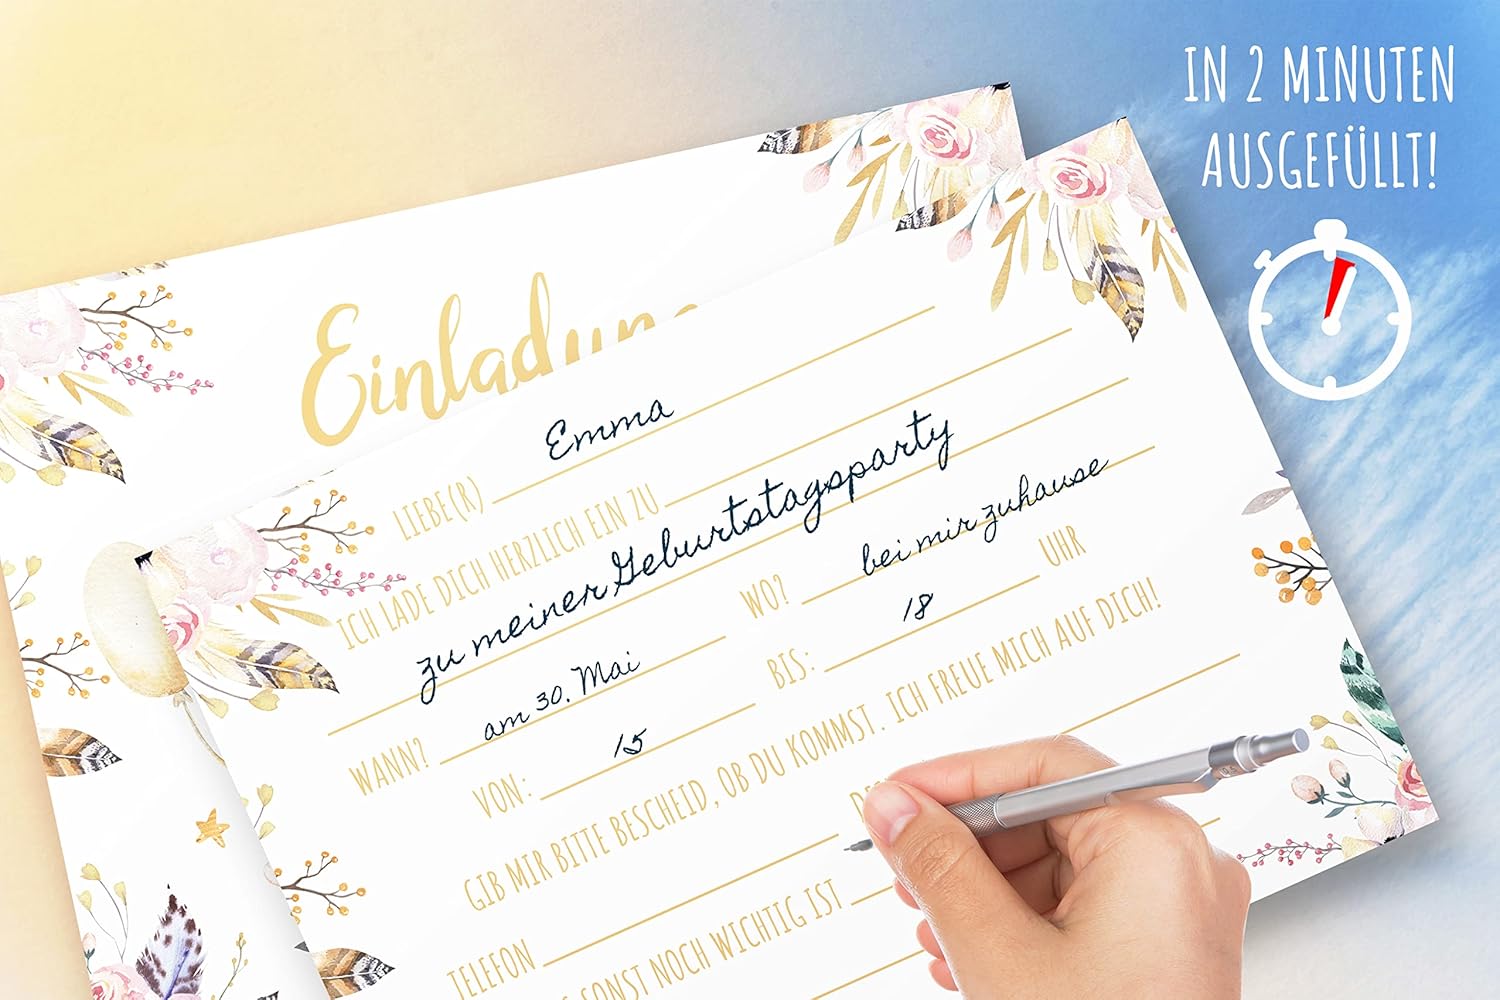 IN 2 MINUTEN
AUSGEFÜLLT!
Einladung
LIEBE(R) Emma
ICH LADE DICH HERZLICH EIN ZU
zu meiner Geburtstagsparty
WANN? am 30. Mai WO? bei mir zuhause
VON: 15 BIS: 18 UHR
GIB MIR BITTE BESCHEID, OB DU KOMMST. ICH FREUE MICH AUF DICH!
TELEFON
SONST NOCH WICHTIG IST